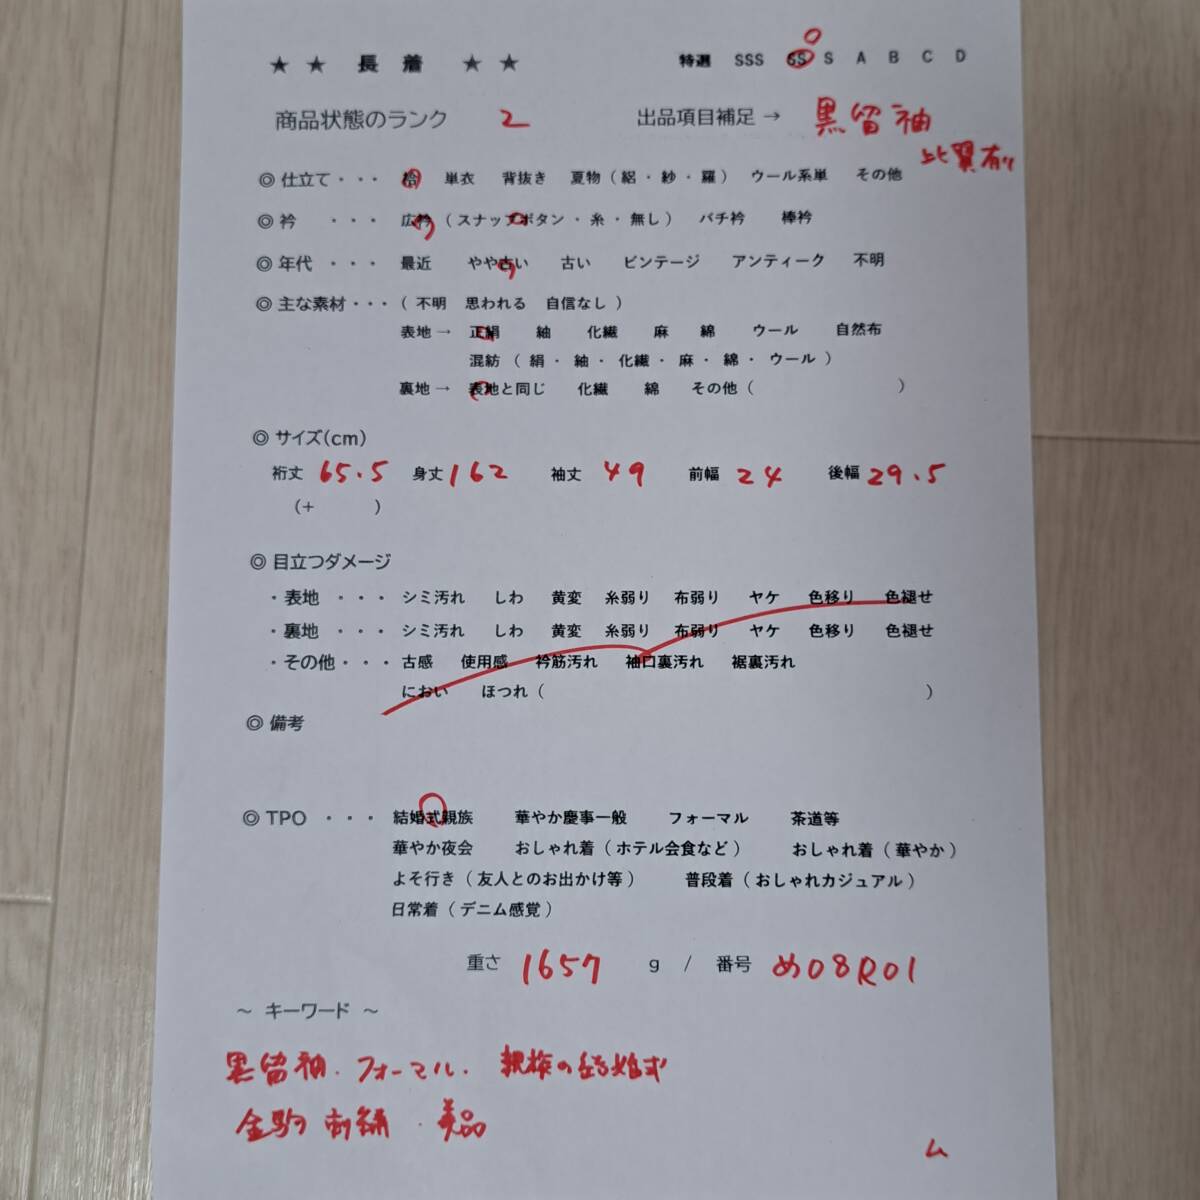 ★ ★ 長 着 ★ ★ 特選 SSS SS S A B C D
商品状態のランク 2 出品項目補足 → 黒留袖
比翼有り
◎ 仕立て・・・ 袷 単衣 背抜き 夏物（絽・紗・羅） ウール系単 その他
◎ 衿 ・・・ 広衿（スナップボタン・糸・無し） バチ衿 棒衿
◎ 年代 ・・・ 最近 やや古い 古い ビンテージ アンティーク 不明
◎ 主な素材・・・（ 不明 思われる 自信なし ）
表地→ 正絹 紬 化繊 麻 綿 ウール 自然布
混紡（ 絹・紬・化繊・麻・綿・ウール ）
裏地→ 表地と同じ 化繊 綿 その他（ ）
◎ サイズ(cm)
裄丈 65.5 身丈 162 袖丈 49 前幅 24 後幅 29.5
（+ ）
◎ 目立つダメージ
・表地 ・・・ シミ汚れ しわ 黄変 糸弱り 布弱り ヤケ 色移り 色褪せ
・裏地 ・・・ シミ汚れ しわ 黄変 糸弱り 布弱り ヤケ 色移り 色褪せ
・その他・・・ 古感 使用感 衿筋汚れ 袖口裏汚れ 裾裏汚れ
におい ほつれ（ ）
◎ 備考
◎ TPO ・・・ 結婚式親族 華やか慶事一般 フォーマル 茶道等
華やか夜会 おしゃれ着（ホテル会食など） おしゃれ着（華やか）
よそ行き（友人とのお出かけ等） 普段着（おしゃれカジュアル）
日常着（デニム感覚）
重さ 1657 g / 番号 め08R01
～ キーワード ～
黒留袖・フォーマル・ 親族の結婚式
金駒刺繍・美品
ム